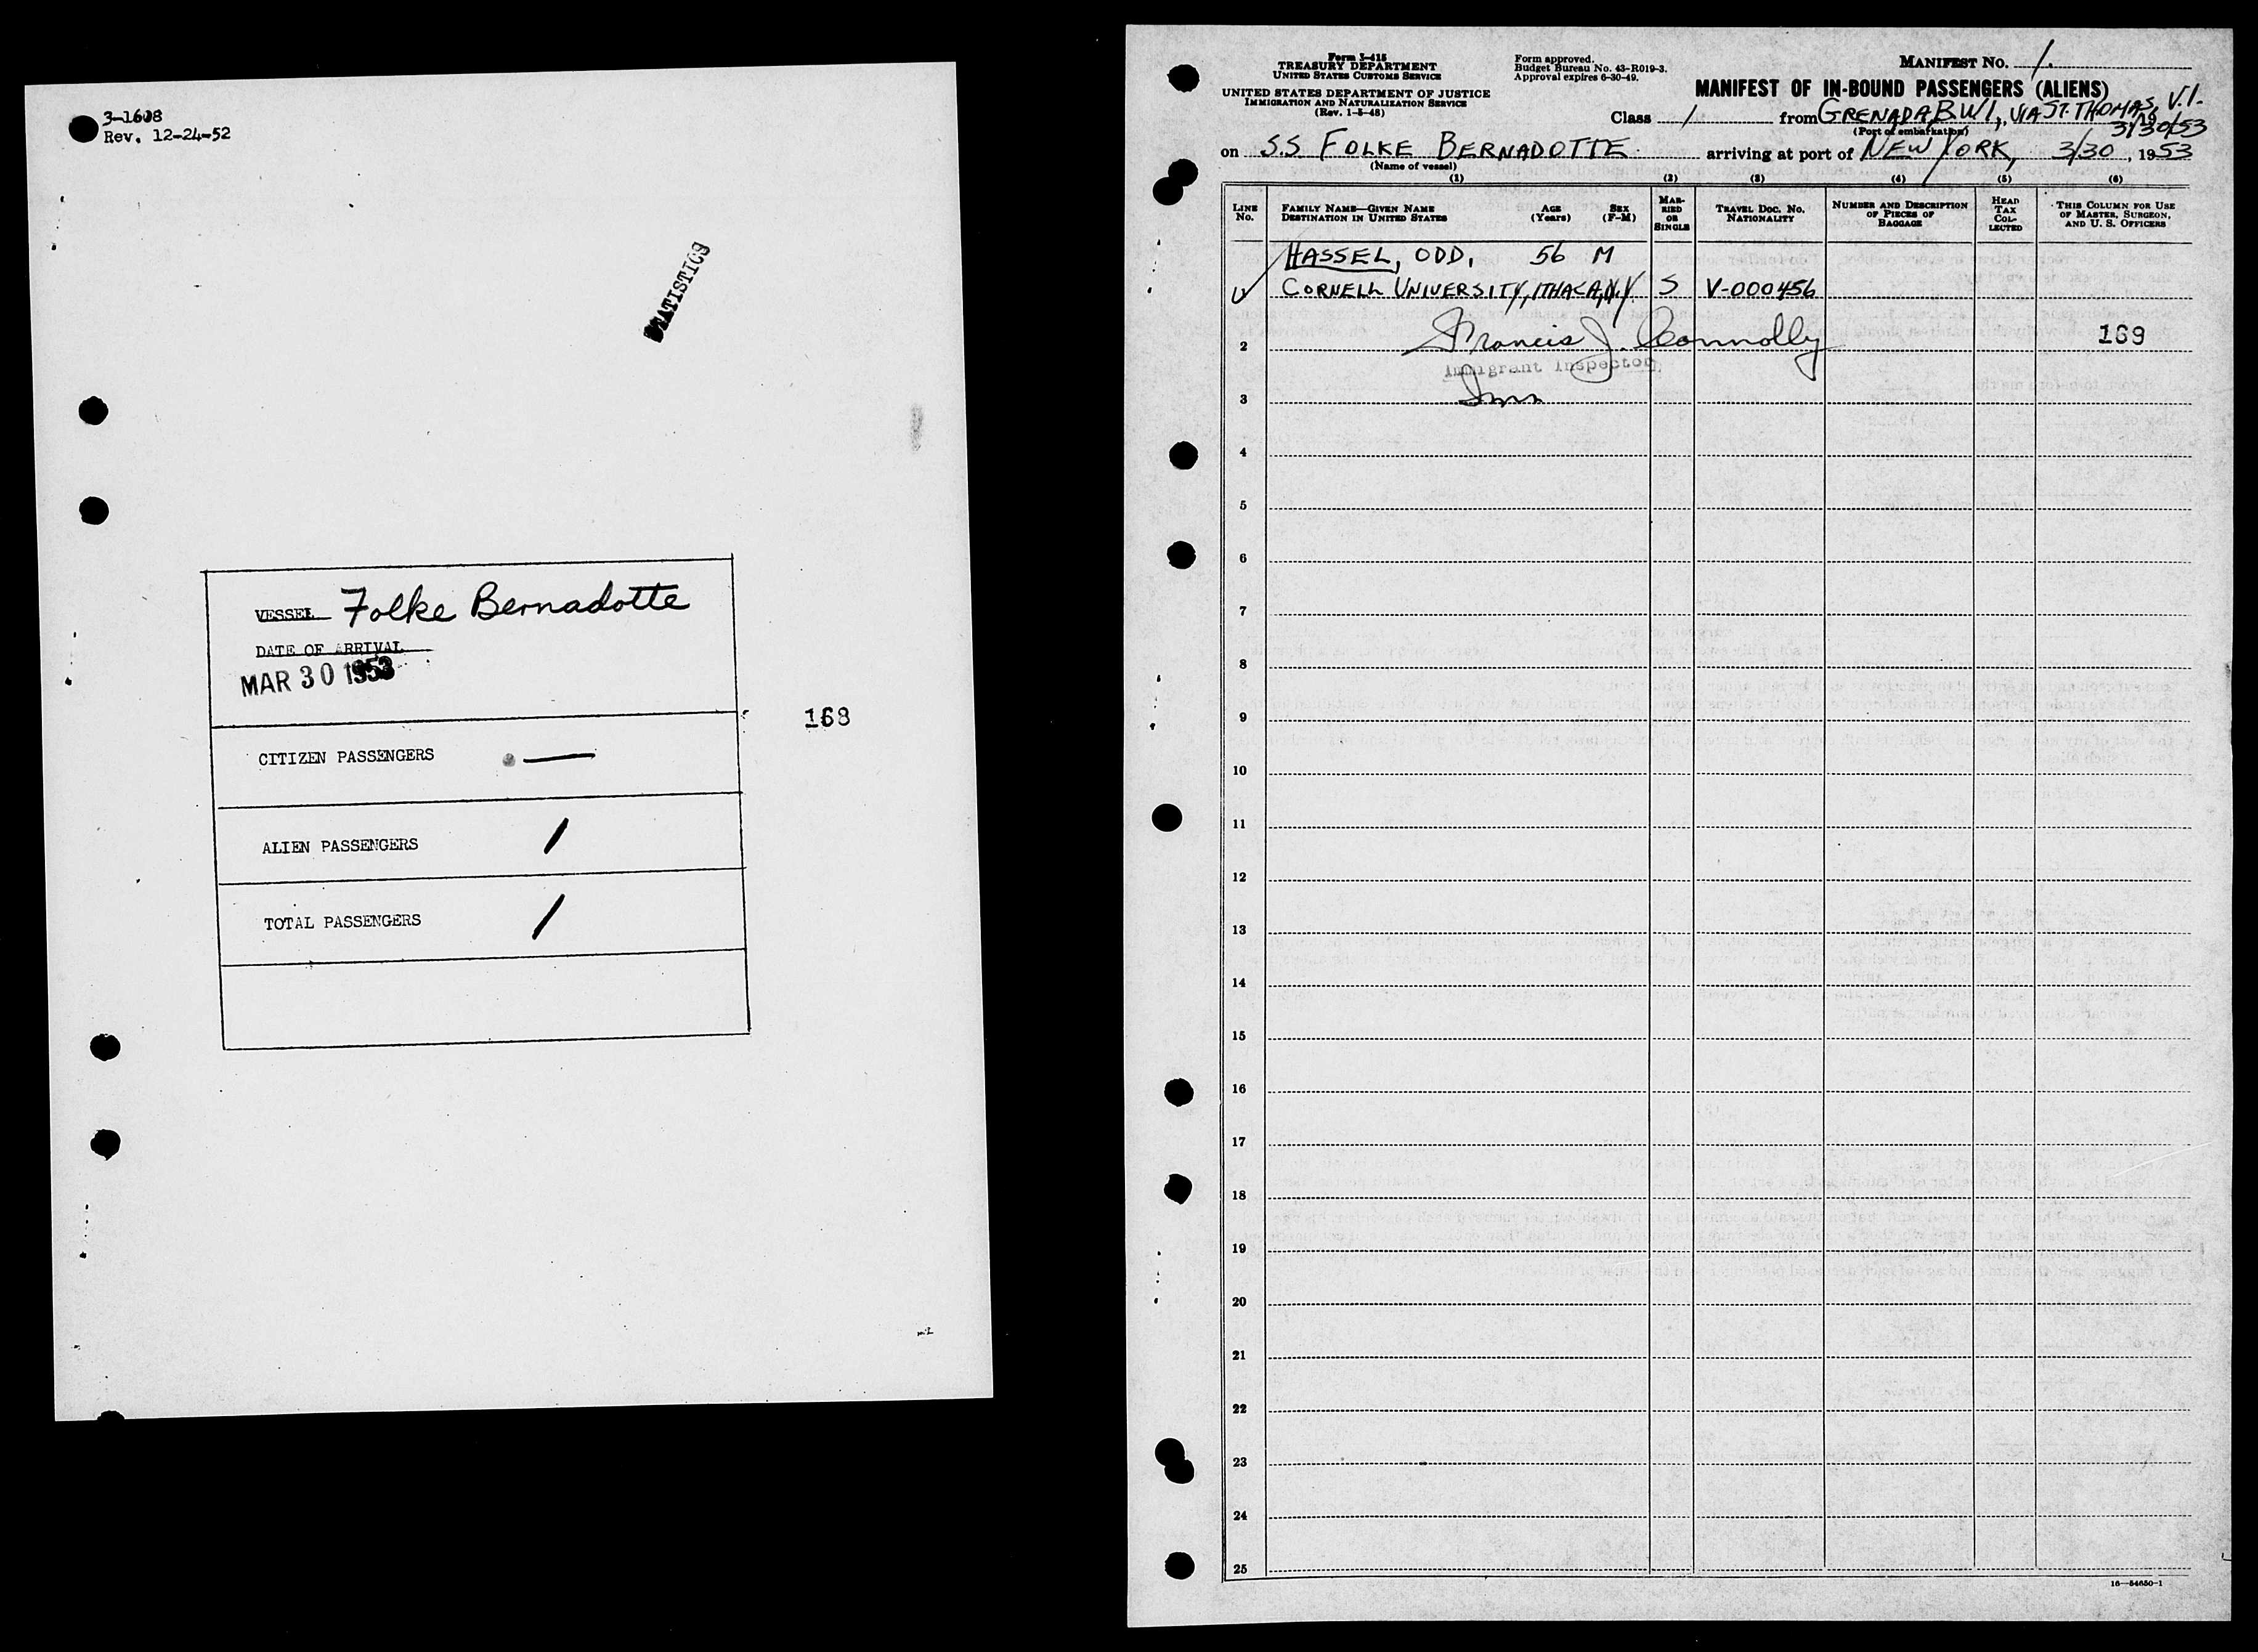 3-1608
Rev. 12-24-52
STATISTICS
VESSEL Folke Bernadotte
DATE OF ARRIVAL
MAR 30 1953
168
CITIZEN PASSENGERS —
ALIEN PASSENGERS 1
TOTAL PASSENGERS 1
Form I-415
TREASURY DEPARTMENT
UNITED STATES CUSTOMS SERVICE
UNITED STATES DEPARTMENT OF JUSTICE
IMMIGRATION AND NATURALIZATION SERVICE
(Rev. 1-5-48)
Form approved.
Budget Bureau No. 43-R019-3.
Approval expires 6-30-49.
MANIFEST No. 1.
MANIFEST OF IN-BOUND PASSENGERS (ALIENS)
Class 1 from GRENADA, B.W.I., VIA ST. THOMAS, V.I.
(Port of embarkation) 19
3/30/53
on S.S FOLKE BERNADOTTE arriving at port of NEW YORK, 3/30, 1953
(Name of vessel)
(1) (2) (3) (4) (5) (6)
LINE No. FAMILY NAME—GIVEN NAME DESTINATION IN UNITED STATES AGE (Years) SEX (F-M) MARRIED OR SINGLE TRAVEL DOC. No. NATIONALITY NUMBER AND DESCRIPTION OF PIECES OF BAGGAGE HEAD TAX COLLECTED THIS COLUMN FOR USE OF MASTER, SURGEON, AND U. S. OFFICERS
HASSEL, ODD, 56 M
CORNELL UNIVERSITY, ITHACA, N.Y. S V-000456
2 Francis J. Connolly 169
Immigrant Inspector
3
4
5
6
7
8
9
10
11
12
13
14
15
16
17
18
19
20
21
22
23
24
25
16—54650-1